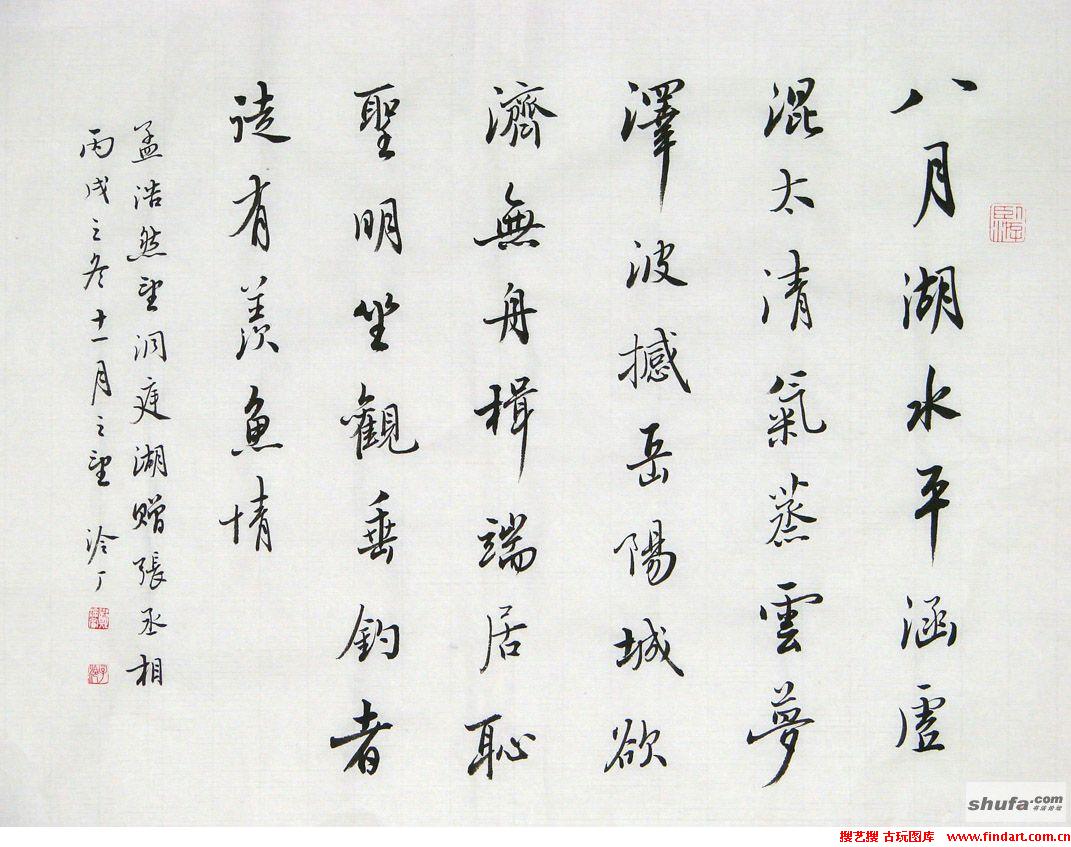 八月湖水平涵虚
混太清氣蒸雲夢
澤波撼岳陽城欲
濟無舟楫端居恥
聖明坐觀垂釣者
徒有羨魚情
孟浩然望洞庭湖贈張丞相
丙戌之冬十一月之望 泠丁
shufa.com
搜艺搜 古玩图库 www.findart.com.cn